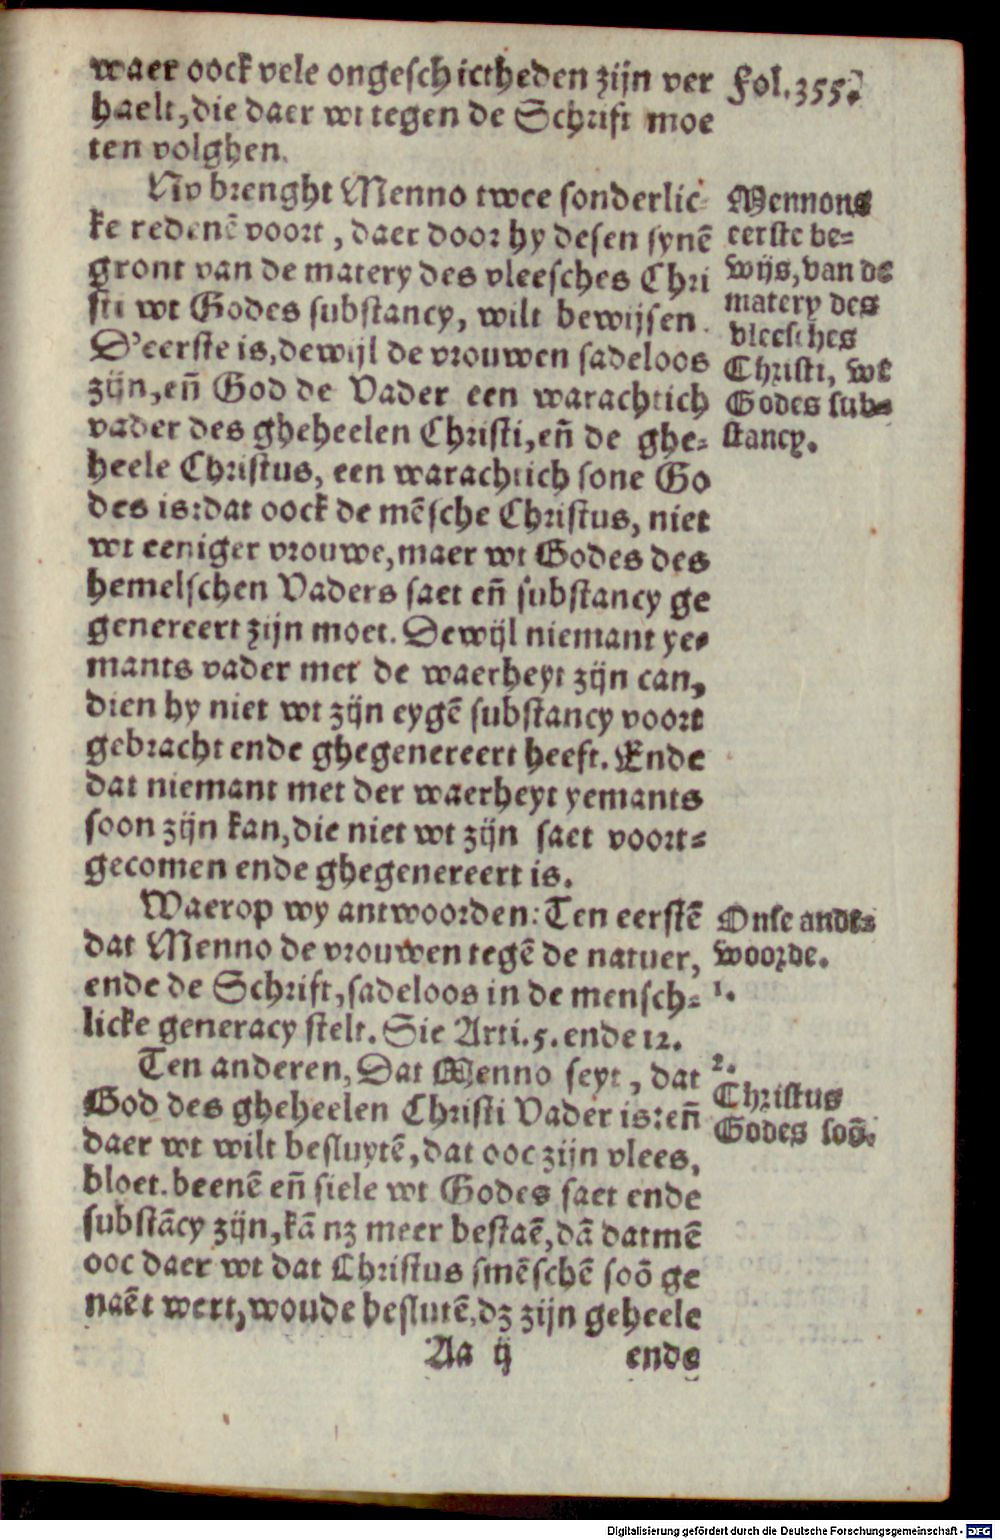 waer oock vele ongeschictheden zijn ver
haelt, die daer wt tegen de Schrift moe
ten volghen.
Nv brenght Menno twee sonderlic-
ke redenē voort, daer door hy desen synē
gront van de matery des vleesches Chri
sti wt Godes substancy, wilt bewijsen.
D'eerste is, dewijl de vrouwen sadeloos
zijn, eñ God de Vader een warachtich
vader des gheheelen Christi, eñ de ghe-
heele Christus, een warachtich sone Go
des is: dat oock de mēsche Christus, niet
wt eeniger vrouwe, maer wt Godes des
hemelschen Vaders saet eñ substancy ge
genereert zijn moet. Dewijl niemant ye-
mants vader met de waerheyt zijn can,
dien hy niet wt zijn eygē substancy voort
gebracht ende ghegenereert heeft. Ende
dat niemant met der waerheyt yemants
soon zijn kan, die niet wt zijn saet voort-
gecomen ende ghegenereert is.
Waerop wy antwoorden: Ten eerstē
dat Menno de vrouwen tegē de natuer,
ende de Schrift, sadeloos in de mensch-
licke generacy stelt. Sie Arti. 5. ende 12.
Ten anderen, Dat Menno seyt, dat
God des gheheelen Christi Vader is: eñ
daer wt wilt besluytē, dat ooc zijn vlees,
bloet. beenē eñ siele wt Godes saet ende
substācy zijn, kā nz meer bestaē, dā datmē
ooc daer wt dat Christus smēschē soō ge
naēt wert, woude beslutē, dz zijn geheele
Aa ij ende
Fol. 355.
Mennons
eerste be-
wijs, van de
matery des
vleesches
Christi, wt
Godes sub-
stancy.
Onse andt-
woorde.
1.
2.
Christus
Godes soō.
Digitalisierung gefördert durch die Deutsche Forschungsgemeinschaft - DFG